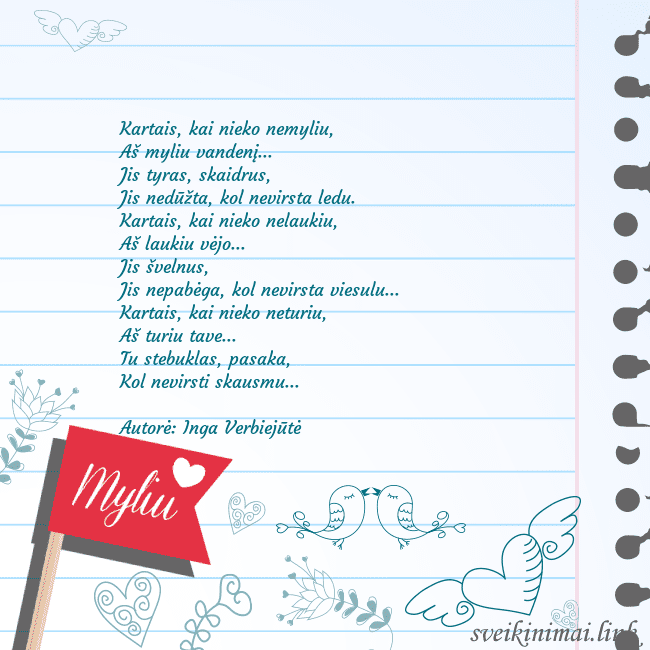 Kartais, kai nieko nemyliu,
Aš myliu vandenį...
Jis tyras, skaidrus,
Jis nedūžta, kol nevirsta ledu.
Kartais, kai nieko nelaukiu,
Aš laukiu vėjo...
Jis švelnus,
Jis nepabėga, kol nevirsta viesulu...
Kartais, kai nieko neturiu,
Aš turiu tave...
Tu stebuklas, pasaka,
Kol nevirsti skausmu...
Autorė: Inga Verbiejūtė
Myliu
sveikinimai.link